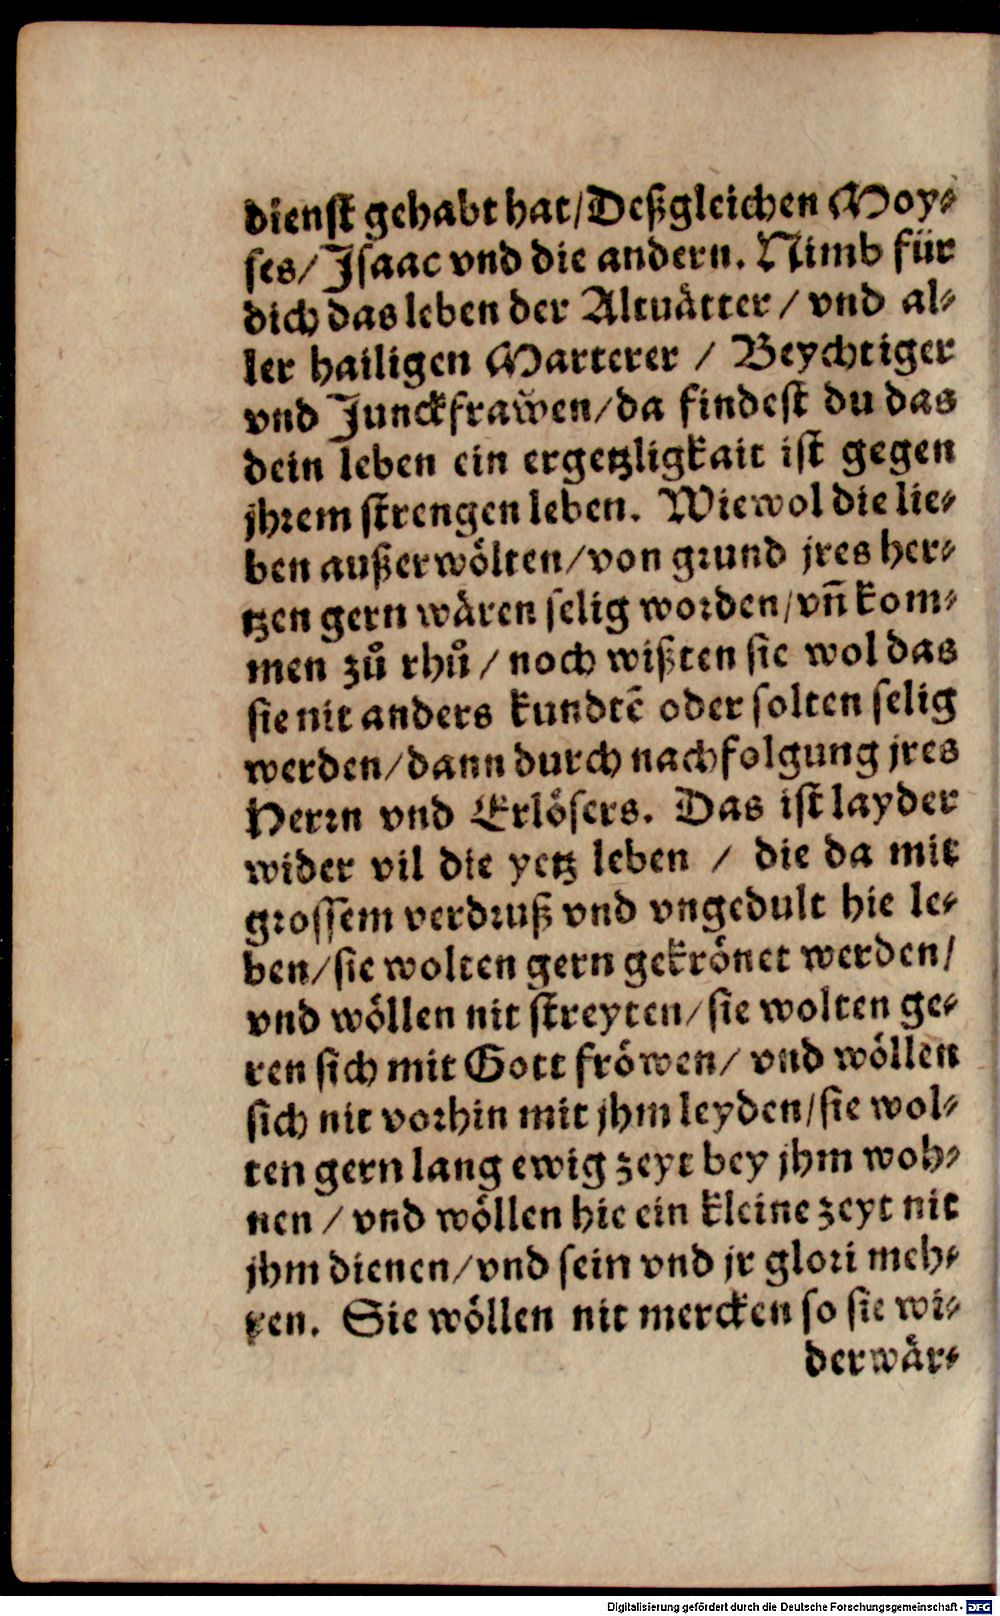 dienst gehabt hat/Deßgleichen Moy⸗
ses/Isaac vnd die andern. Nimb für
dich das leben der Altuätter / vnd al⸗
ler hailigen Marterer / Beychtiger
vnd Junckfrawen/da findest du das
dein leben ein ergetzligkait ist gegen
jhrem strengen leben. Wiewol die lie⸗
ben außerwölten/von grund jres her⸗
tzen gern wären selig worden/vn̄ kom⸗
men zů rhů / noch wißten sie wol das
sie nit anders kundtē oder solten selig
werden/dann durch nachfolgung jres
Herrn vnd Erlösers. Das ist layder
wider vil die yetz leben / die da mit
grossem verdruß vnd vngedult hie le⸗
ben/sie wolten gern gekrönet werden/
vnd wöllen nit streyten/sie wolten ge⸗
ren sich mit Gott fröwen/ vnd wöllen
sich nit vorhin mit jhm leyden/sie wol⸗
ten gern lang ewig zeyt bey jhm woh⸗
nen / vnd wöllen hie ein kleine zeyt nit
jhm dienen/vnd sein vnd jr glori meh⸗
ren. Sie wöllen nit mercken so sie wi⸗
derwär⸗
Digitalisierung gefördert durch die Deutsche Forschungsgemeinschaft - DFG